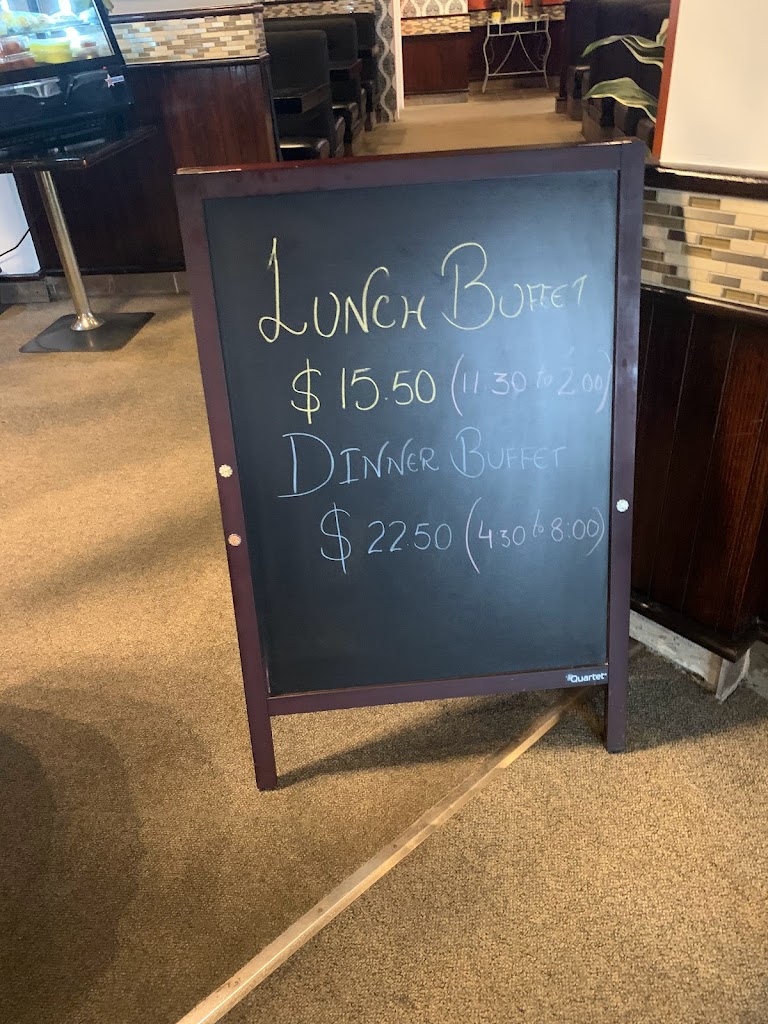 LUNCH BUFFET
$ 15.50 (11.30 to 2.00)
DINNER BUFFET
$ 22.50 (4:30 to 8:00)
Quartet